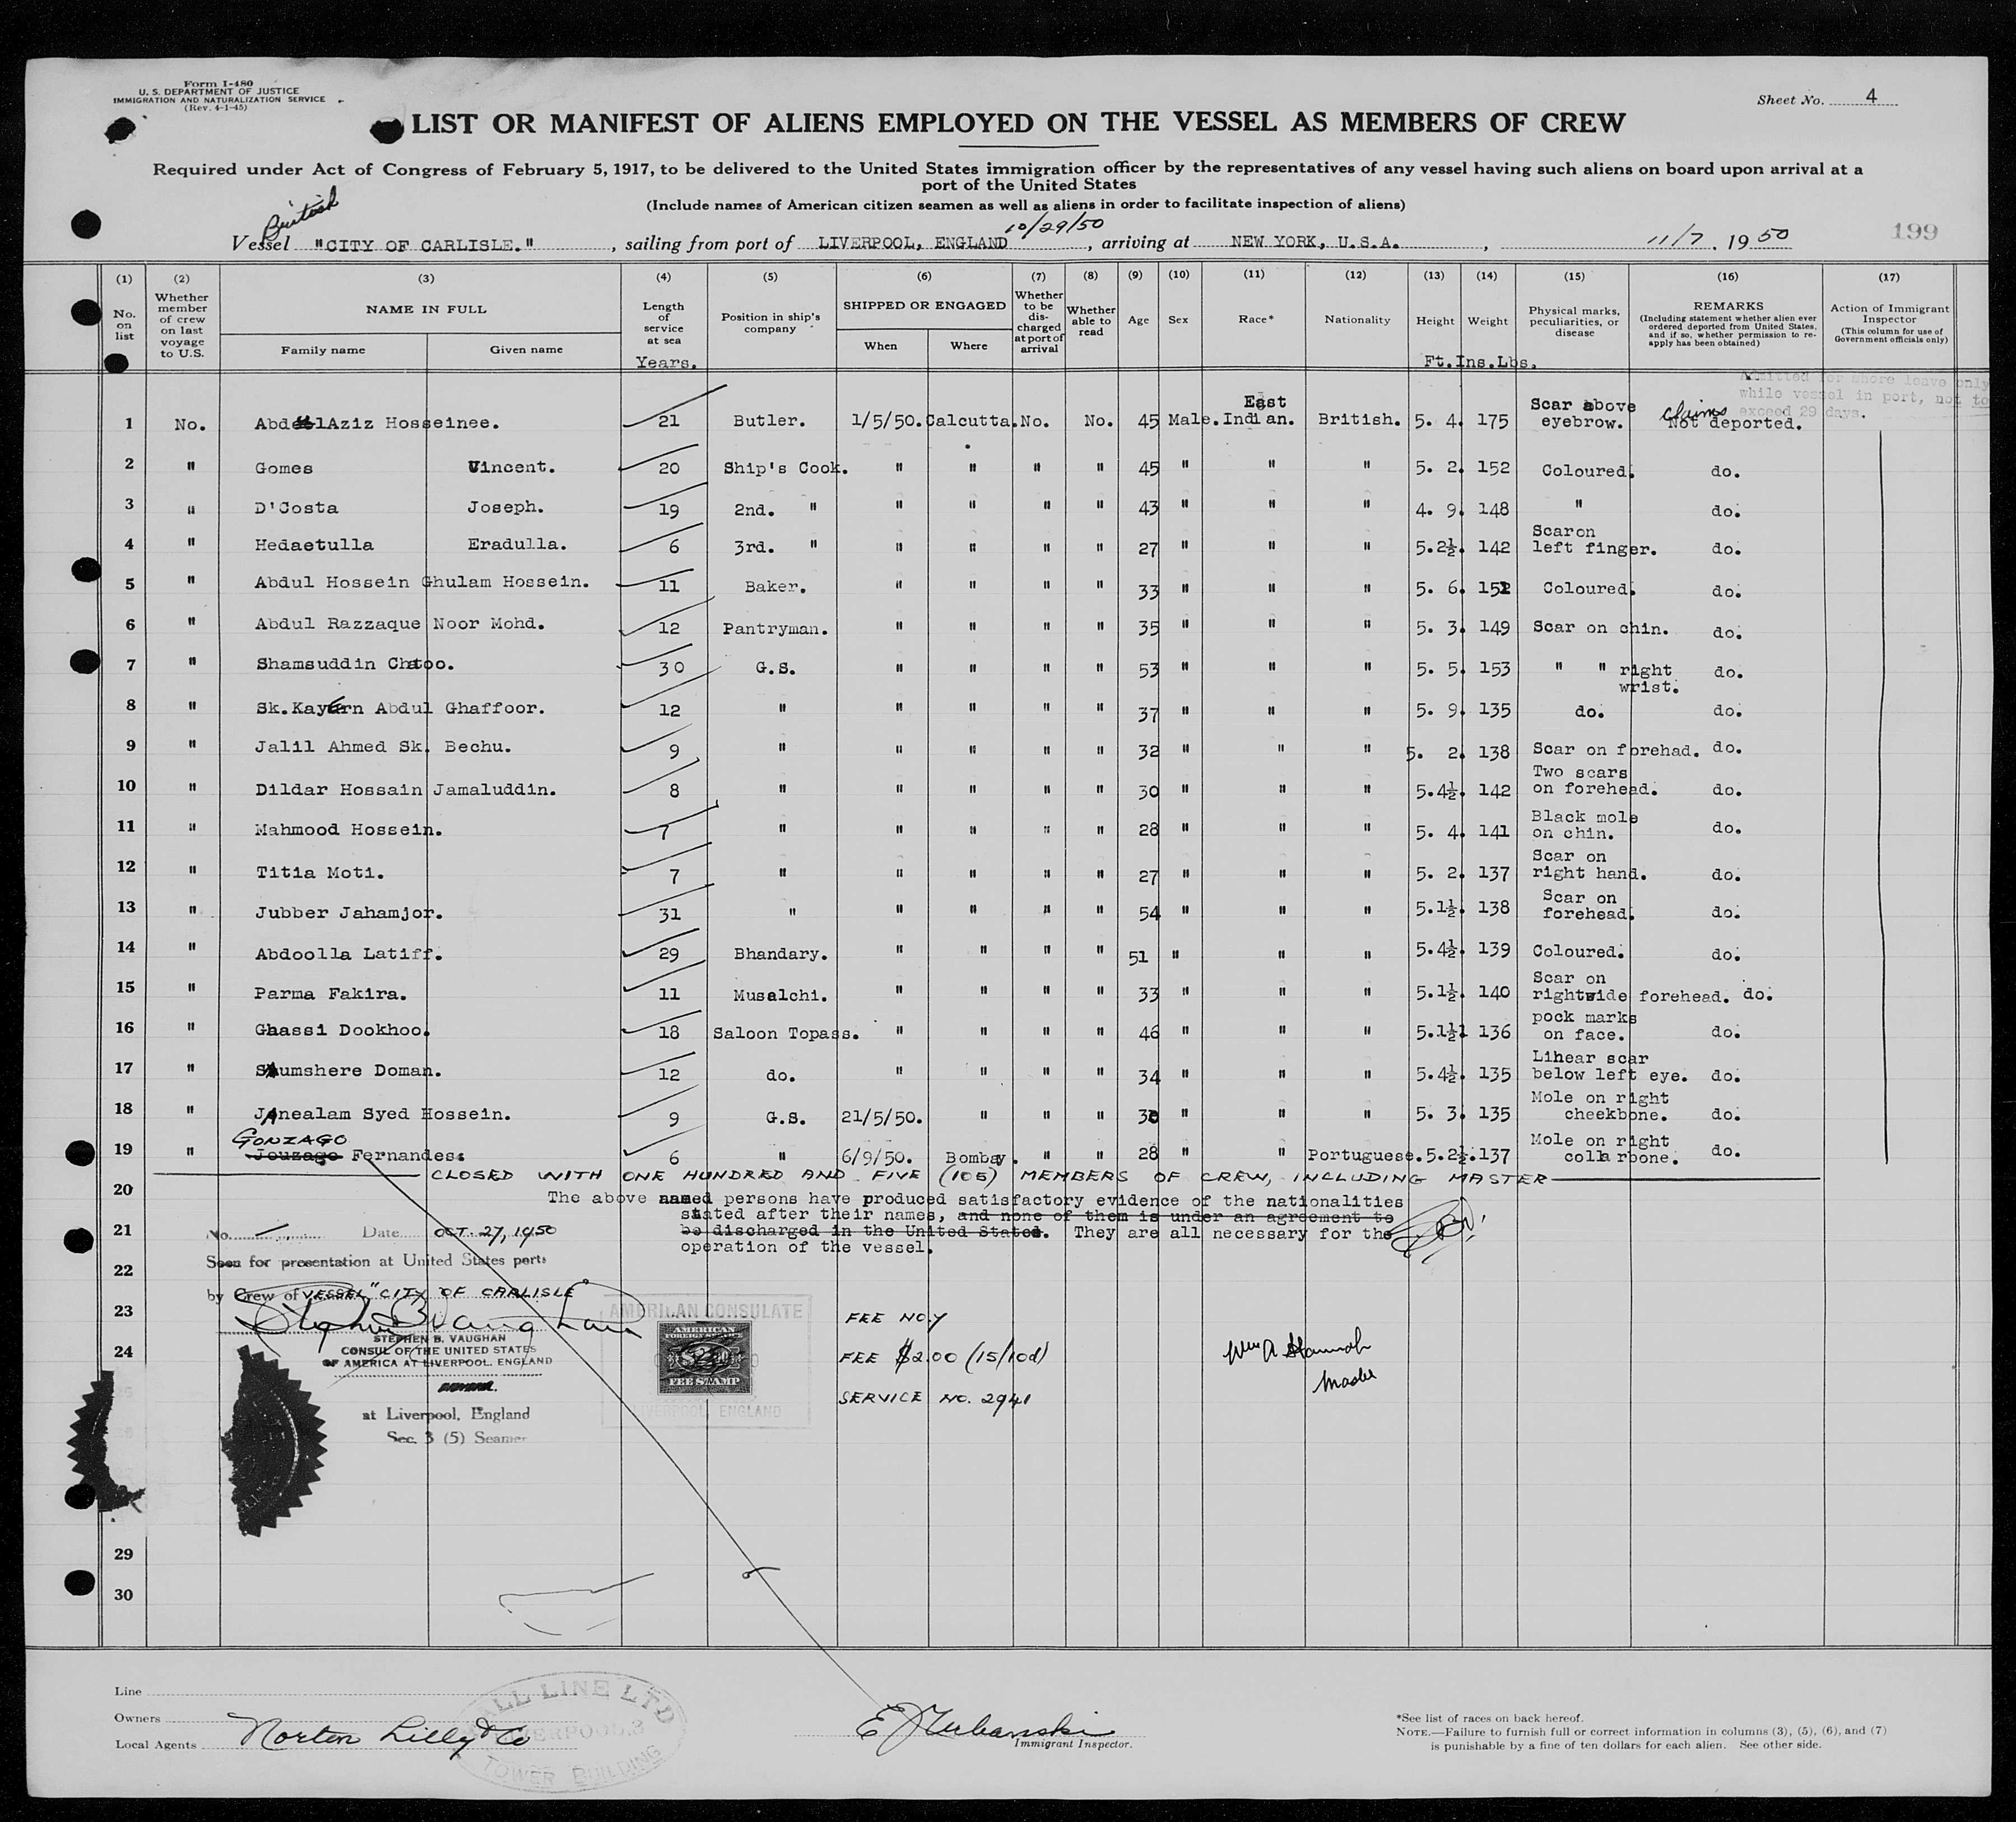 Form I-480
U. S. DEPARTMENT OF JUSTICE
IMMIGRATION AND NATURALIZATION SERVICE
(Rev. 4-1-45)
Sheet No. 4
LIST OR MANIFEST OF ALIENS EMPLOYED ON THE VESSEL AS MEMBERS OF CREW
Required under Act of Congress of February 5, 1917, to be delivered to the United States immigration officer by the representatives of any vessel having such aliens on board upon arrival at a
port of the United States
(Include names of American citizen seamen as well as aliens in order to facilitate inspection of aliens)
British 10/29/50
Vessel "CITY OF CARLISLE." , sailing from port of LIVERPOOL, ENGLAND , arriving at NEW YORK, U.S.A. , 11/7 , 19 50 199
(1) No. on list
(2) Whether member of crew on last voyage to U.S.
(3) NAME IN FULL Family name Given name
(4) Length of service at sea Years.
(5) Position in ship's company
(6) SHIPPED OR ENGAGED When Where
(7) Whether to be discharged at port of arrival
(8) Whether able to read
(9) Age
(10) Sex
(11) Race*
(12) Nationality
(13) Height Ft. Ins.
(14) Weight Lbs.
(15) Physical marks, peculiarities, or disease
(16) REMARKS (Including statement whether alien ever ordered deported from United States, and if so, whether permission to re-apply has been obtained)
(17) Action of Immigrant Inspector (This column for use of Government officials only)
Admitted for shore leave only
while vessel in port, not to
exceed 29 days.
1 No. Abdul Aziz Hosseinee. 21 Butler. 1/5/50. Calcutta. No. No. 45 Male. East Indian. British. 5. 4. 175 Scar above eyebrow. claims Not deported.
2 " Gomes Vincent. 20 Ship's Cook. " " " " 45 " " " 5. 2. 152 Coloured. do.
3 " D'Costa Joseph. 19 2nd. " " " " " 43 " " " 4. 9. 148 " do.
4 " Hedaetulla Eradulla. 6 3rd. " " " " " 27 " " " 5.2½. 142 Scar on left finger. do.
5 " Abdul Hossein Ghulam Hossein. 11 Baker. " " " " 33 " " " 5. 6. 152 Coloured. do.
6 " Abdul Razzaque Noor Mohd. 12 Pantryman. " " " " 35 " " " 5. 3. 149 Scar on chin. do.
7 " Shamsuddin Chatoo. 30 G.S. " " " " 53 " " " 5. 5. 153 " " right wrist. do.
8 " Sk. KayEm Abdul Ghaffoor. 12 " " " " " 37 " " " 5. 9. 135 do. do.
9 " Jalil Ahmed Sk. Bechu. 9 " " " " " 32 " " " 5. 2. 138 Scar on forehad. do.
10 " Dildar Hossain Jamaluddin. 8 " " " " " 30 " " " 5.4½. 142 Two scars on forehead. do.
11 " Mahmood Hossein. 7 " " " " " 28 " " " 5. 4. 141 Black mole on chin. do.
12 " Titia Moti. 7 " " " " " 27 " " " 5. 2. 137 Scar on right hand. do.
13 " Jubber Jahamjor. 31 " " " " " 54 " " " 5.1½. 138 Scar on forehead. do.
14 " Abdoolla Latiff. 29 Bhandary. " " " " 51 " " " 5.4½. 139 Coloured. do.
15 " Parma Fakira. 11 Musalchi. " " " " 33 " " " 5.1½. 140 Scar on rightside forehead. do.
16 " Ghassi Dookhoo. 18 Saloon Topass. " " " " 46 " " " 5.1½ 136 pock marks on face. do.
17 " SHumshere Doman. 12 do. " " " " 34 " " " 5.4½. 135 Linear scar below left eye. do.
18 " JAnealam Syed Hossein. 9 G.S. 21/5/50. " " " 30 " " " 5. 3. 135 Mole on right cheekbone. do.
19 " GONZAGO Jouzago Fernandes. 6 " 6/9/50. Bombay. " " 28 " " Portuguese. 5.2½. 137 Mole on right collarbone. do.
CLOSED WITH ONE HUNDRED AND FIVE (105) MEMBERS OF CREW, INCLUDING MASTER
20
The above named persons have produced satisfactory evidence of the nationalities
stated after their names, and none of them is under an agreement to
21
be discharged in the United States. They are all necessary for the
operation of the vessel.
No. 1 Date OCT. 27, 1950
Seen for presentation at United States ports
22
by Crew of VESSEL "CITY OF CARLISLE"
23
Stephen B Vaughan
STEPHEN B. VAUGHAN
CONSUL OF THE UNITED STATES
OF AMERICA AT LIVERPOOL. ENGLAND
24
at Liverpool, England
Sec. 3 (5) Seamen
AMERICAN CONSULATE
LIVERPOOL, ENGLAND
AMERICAN
FOREIGN SERVICE
FEE STAMP
FEE NO. 4
FEE $2.00 (15/10d)
SERVICE NO. 2941
Master
29
30
Line
Owners
Local Agents Norton Lilly & Co
HALL LINE LTD
LIVERPOOL.3
TOWER BUILDING
E J Urbanski
Immigrant Inspector.
*See list of races on back hereof.
NOTE.—Failure to furnish full or correct information in columns (3), (5), (6), and (7)
is punishable by a fine of ten dollars for each alien. See other side.